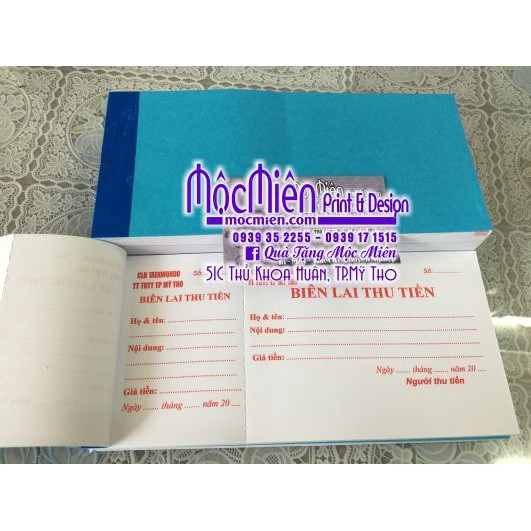 MộcMiên
Print & Design
mocmien.com
0939 35 2255 - 0939 17 1515
Quà Tặng Mộc Miên
51C Thủ Khoa Huân, TP.Mỹ Tho
CLB TAEKWONDO
TT TDTT TP MỸ THO
Số:
BIÊN LAI THU TIỀN
Họ & tên:
Nội dung:
Giá tiền:
Ngày ....... tháng ....... năm 20 ....
Số:
TT TDTT TP MỸ THO
BIÊN LAI THU TIỀN
Họ & tên:
Nội dung:
Giá tiền:
Ngày ....... tháng ....... năm 20 ....
Người thu tiền